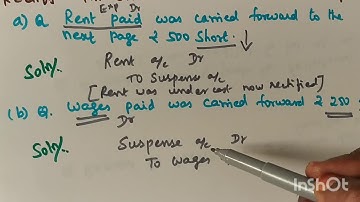 Exp Dr
a) Q Rent paid was carried forward to the
next page ₹ 500 Short.
Soln. Rent a/c Dr
To Suspense a/c
[Rent was under cast now rectified]
(b) Q. Wages paid was carried forward ₹ 250
Dr
Soln. Suspense a/c Dr
To wages
InShOt